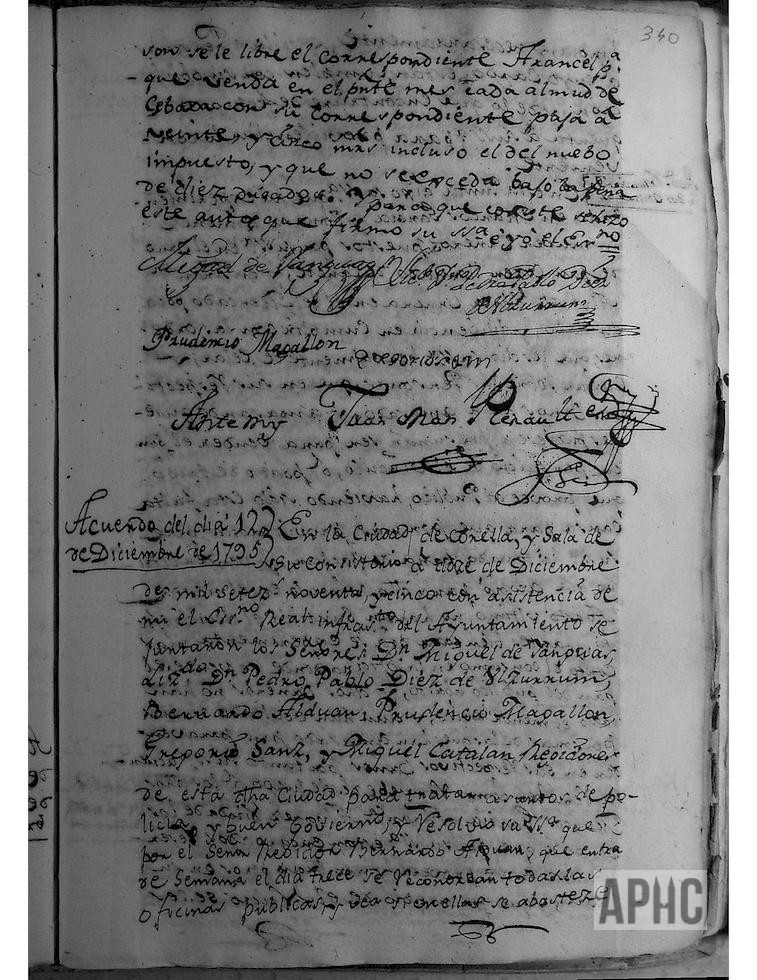 340
son se le libre el correspondiente Arancel p.ª
que venda en el pnte mes cada almud de
Cebada con su correspondiente paja a
veinte, y cinco mrs incluso el del nuebo
impuesto, y que no se exceda bajo la pena
de diez ducados: y para que conste se hizo
este auto que firmo su ssa e yo el Es.no
Miguel de Sanguas Liz.do D.n Pedro Pablo Diez
de Ulzurrun
Prudencio Magallon
Ante my Juan Man
Acuerdo del dia 12
de Diciembre de 1795
En la Ciudad de Corella, y Sala de
su Consistorio a doze de Diciembre
de mil setez.s noventa, y cinco con asistencia de
mi el Es.no Real infras.to del Ayuntamiento se
juntaron los Señores D.n Miguel de Sanguas,
Liz.do D.n Pedro Pablo Diez de Ulzurrun,
Bernardo Alduan, Prudencio Magallon,
Gregorio Sanz, y Miguel Catalan Regidores
de esta dha Ciudad para tratar asuntos de po-
licia, y buen Govierno, y Resolvio su ss.ª que
por el Señor Regidor Bernardo Alduan, que entra
de Semana el dia treze se reconozcan todas las
oficinas publicas, y vea si en ellas se abasteze
APHC